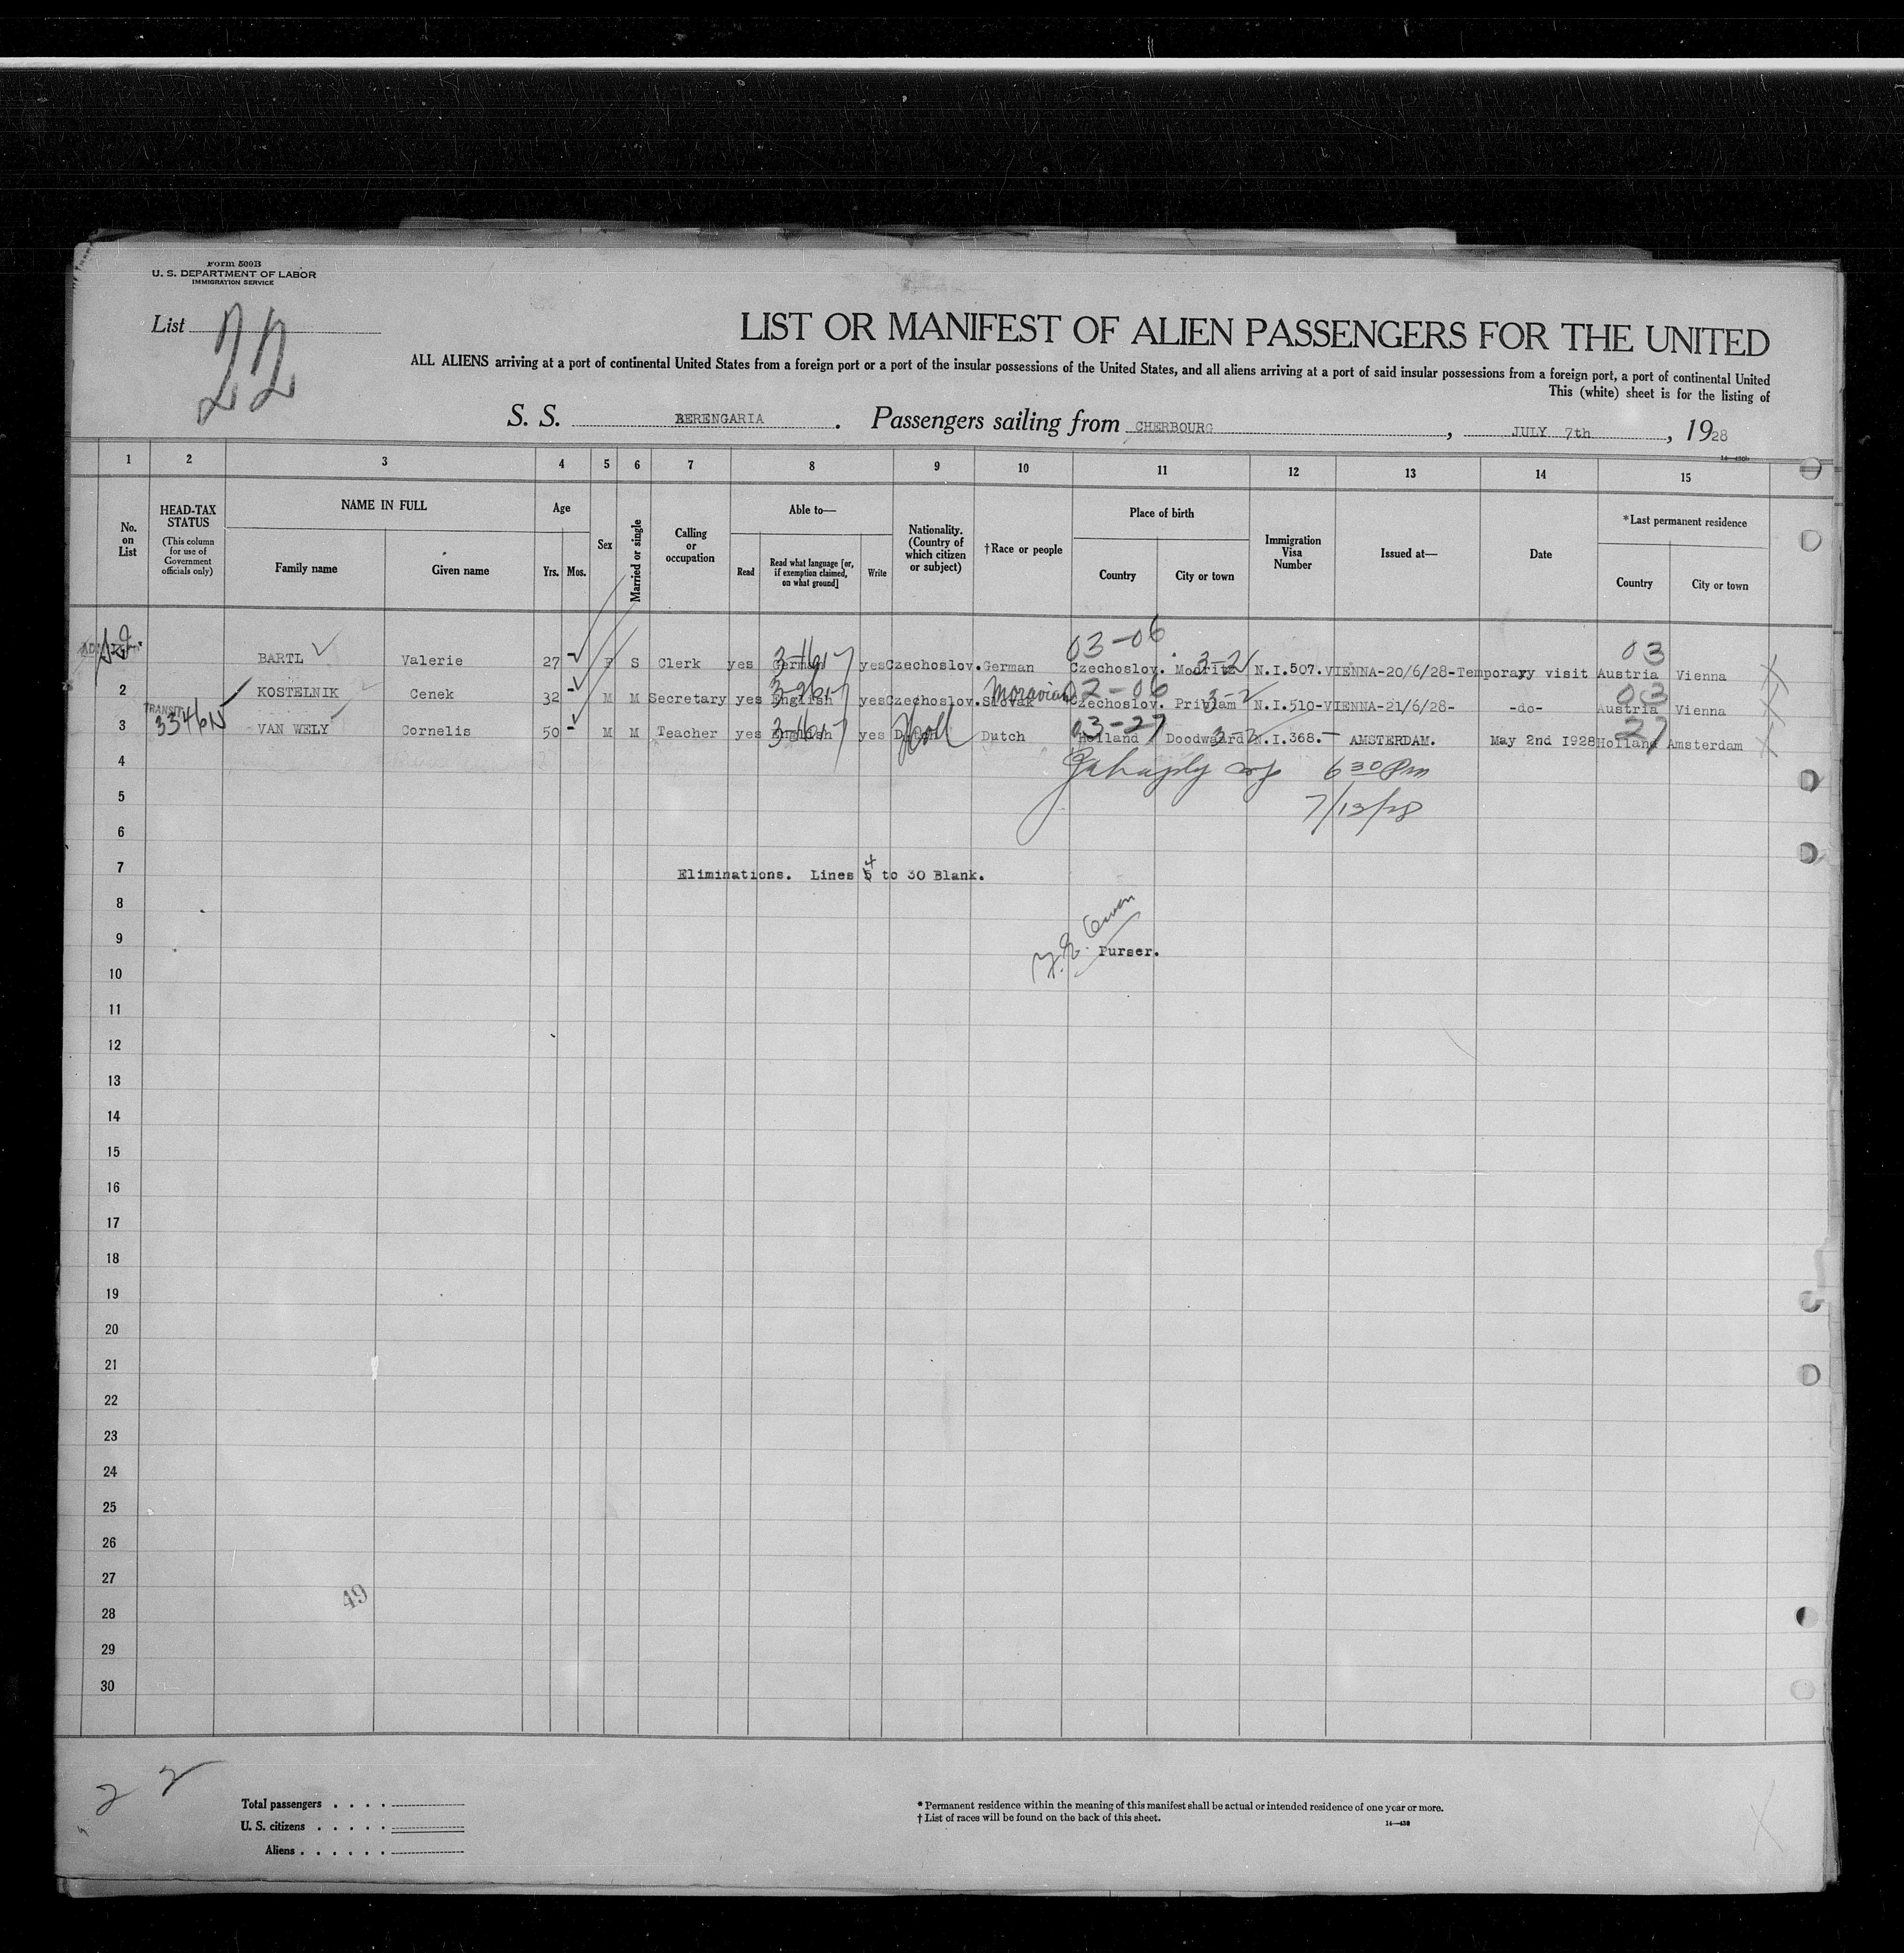 Form 500B
U. S. DEPARTMENT OF LABOR
IMMIGRATION SERVICE
List 22
LIST OR MANIFEST OF ALIEN PASSENGERS FOR THE UNITED
ALL ALIENS arriving at a port of continental United States from a foreign port or a port of the insular possessions of the United States, and all aliens arriving at a port of said insular possessions from a foreign port, a port of continental United
This (white) sheet is for the listing of
S. S. BERENGARIA. Passengers sailing from CHERBOURG, JULY 7th, 1928
1 2 3 4 5 6 7 8 9 10 11 12 13 14 15
No. on List
HEAD-TAX STATUS
(This column for use of Government officials only)
NAME IN FULL
Family name
Given name
Age
Yrs. Mos.
Sex
Married or single
Calling or occupation
Able to—
Read
Read what language [or, if exemption claimed, on what ground]
Write
Nationality. (Country of which citizen or subject)
†Race or people
Place of birth
Country
City or town
Immigration Visa Number
Issued at—
Date
*Last permanent residence
Country
City or town
03-06 03
BARTL Valerie 27 F S Clerk yes German yes Czechoslov. German Czechoslov. N.I.507. VIENNA-20/6/28-Temporary visit Austria Vienna
Moravian 02-06 3-2 03
2 KOSTELNIK Cenek 32 M M Secretary yes English yes Czechoslov. Slovak Czechoslov. Pribram N.I.510-VIENNA-21/6/28- -do- Austria Vienna
TRANSIT
Holl 03-27 3-2 27
3 VAN WELY Cornelis 50 M M Teacher yes English yes Dutch Dutch Holland Doodwaard N.I.368.- AMSTERDAM. May 2nd 1928 Holland Amsterdam
4
6 30 Pm
5
7/13/28
6
7
4
Eliminations. Lines 5 to 30 Blank.
8
9
Purser.
10
11
12
13
14
15
16
17
18
19
20
21
22
23
24
25
26
27
49
28
29
30
2 2
Total passengers . . . .
U. S. citizens . . . . .
Aliens . . . . . .
* Permanent residence within the meaning of this manifest shall be actual or intended residence of one year or more.
† List of races will be found on the back of this sheet.
14—430